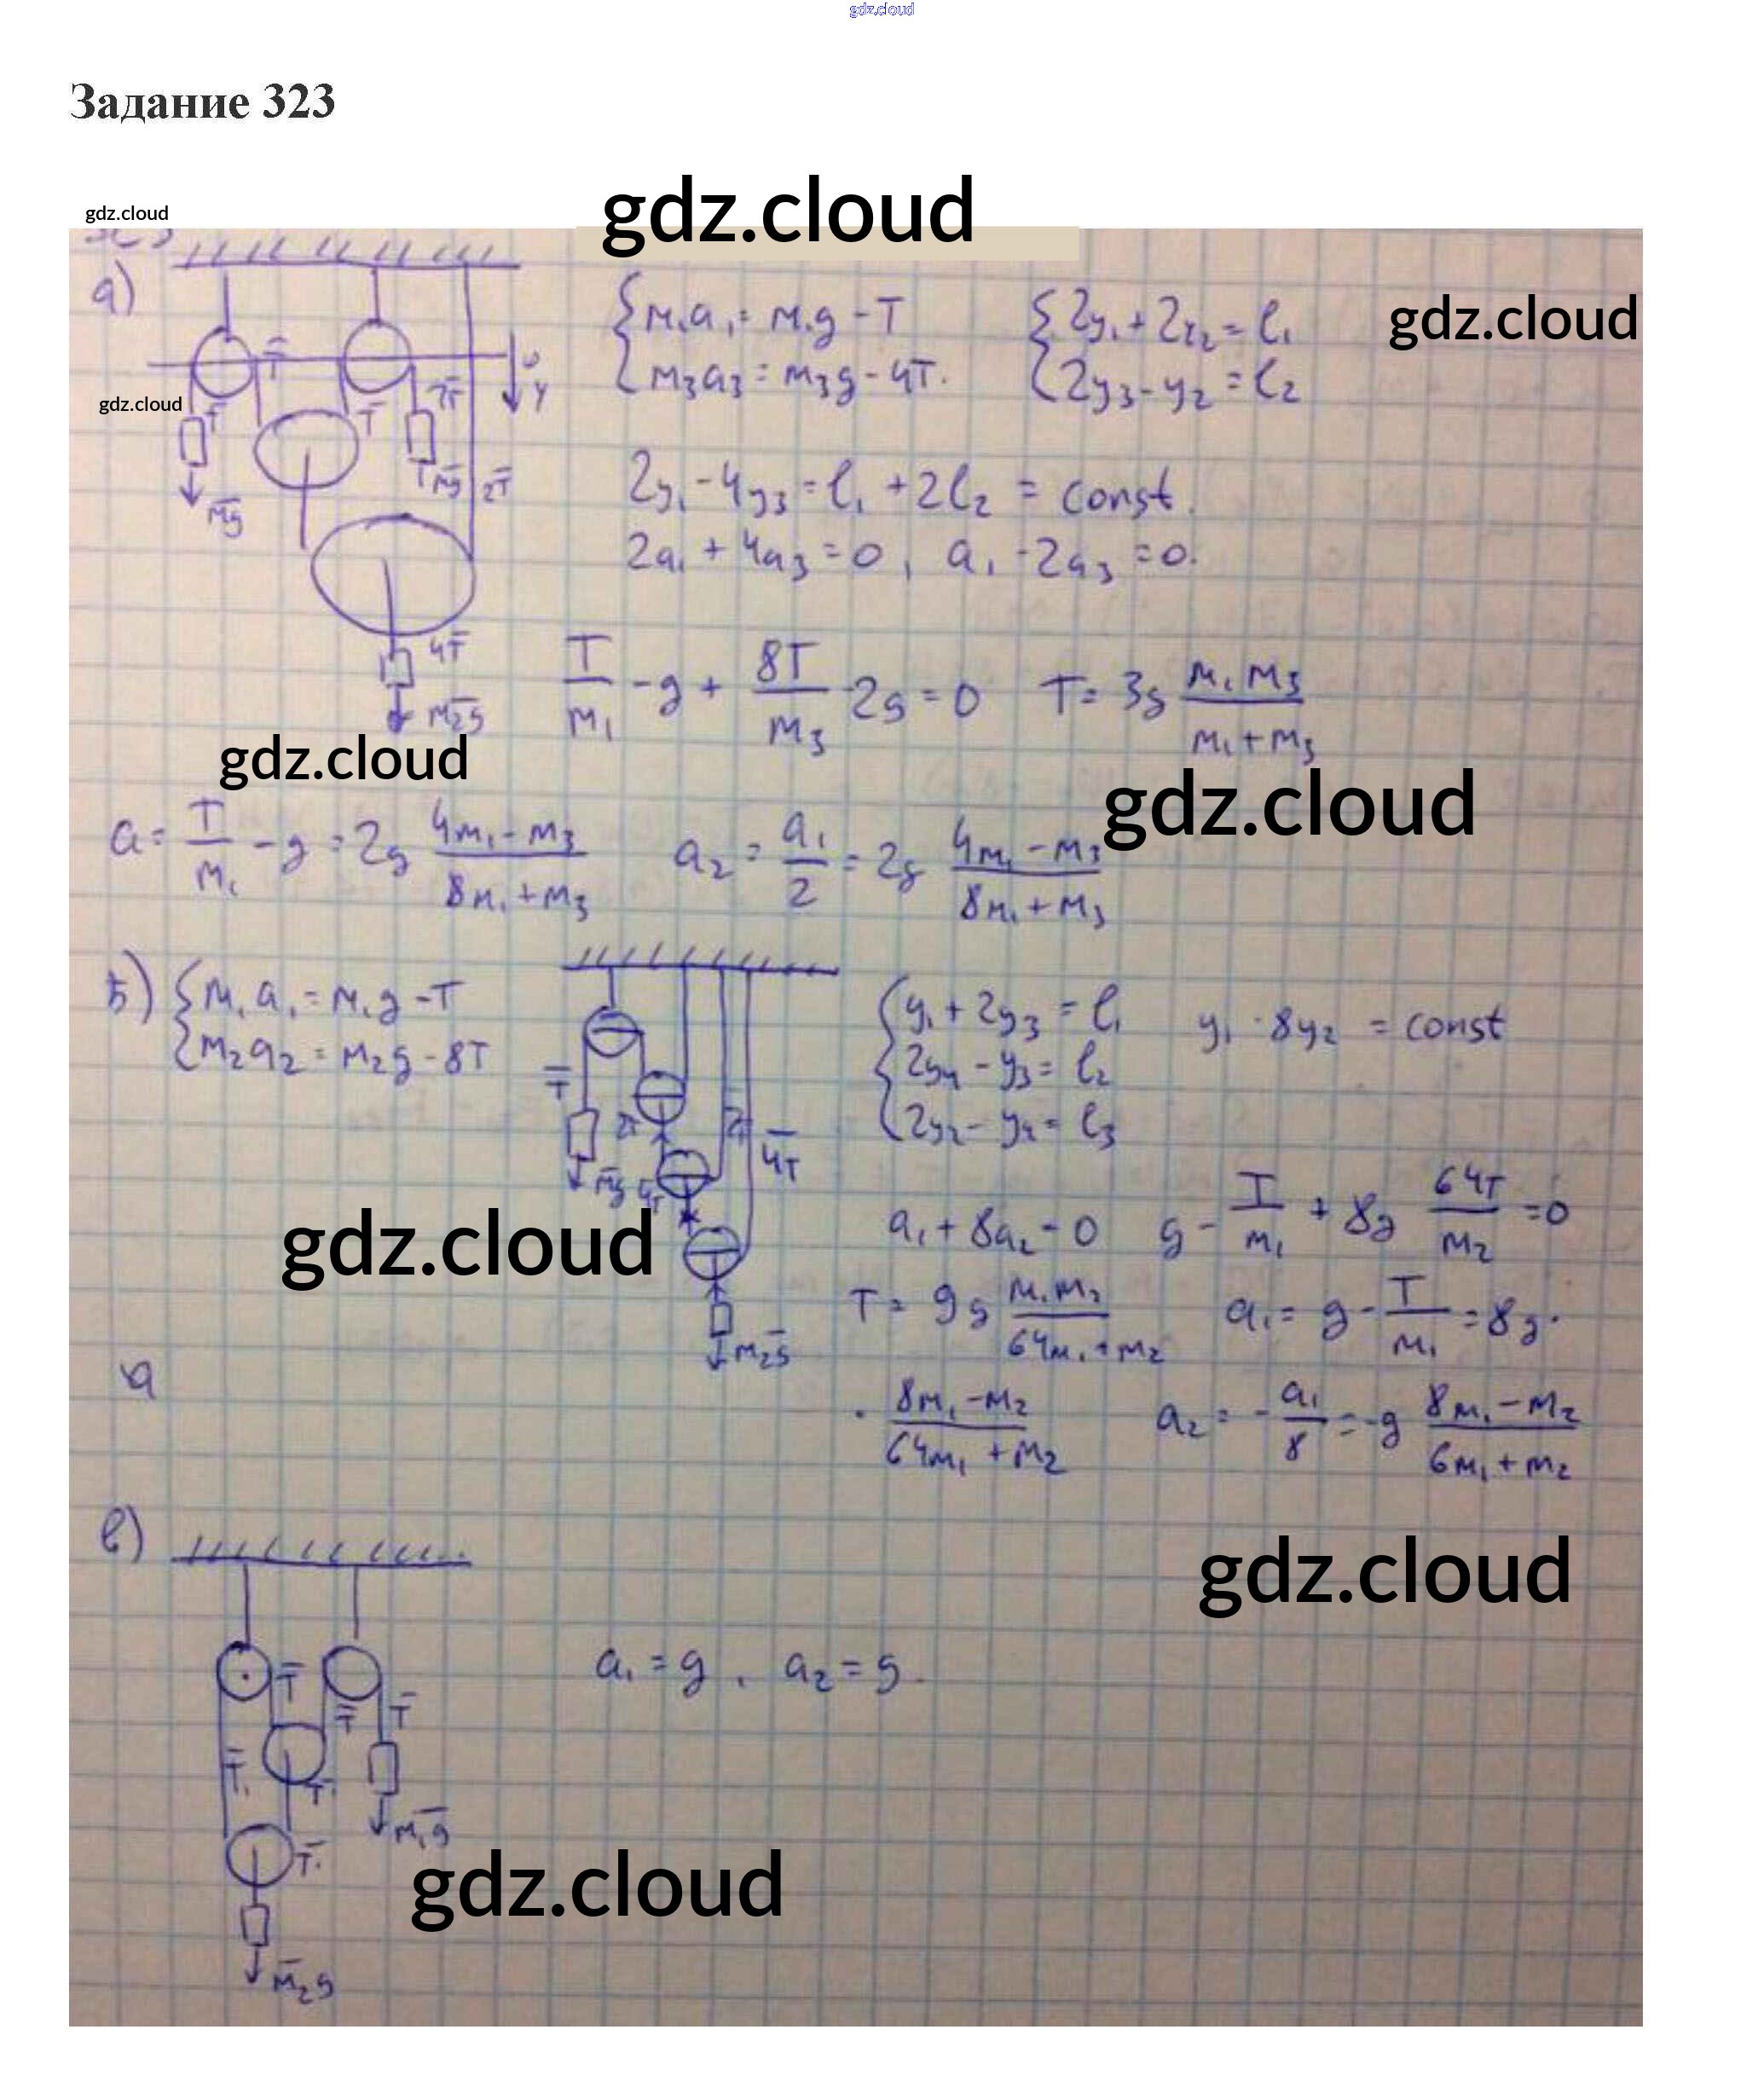 gdz.cloud
Задание 323
gdz.cloud
gdz.cloud
а)
{ m₁a₁ = m₁g - T
{ m₃a₃ = m₃g - 4T.
{ 2y₁ + 2y₂ = l₁
{ 2y₃ - y₂ = l₂
gdz.cloud
gdz.cloud
0
y
T
T
T
2T
mg
mg
2T
2y₁ - 4y₃ = l₁ + 2l₂ = const.
2a₁ + 4a₃ = 0, a₁ - 2a₃ = 0.
4T
m₂g
T/m₁ - g + 8T/m₃ - 2g = 0 T = 3g m₁m₃/(m₁+m₃)
gdz.cloud
gdz.cloud
a = T/m₁ - g = 2g (4m₁ - m₃)/(8m₁ + m₃) a₂ = a₁/2 = 2g (4m₁ - m₃)/(8m₁ + m₃)
б) { m₁a₁ = m₁g - T
{ m₂a₂ = m₂g - 8T
{ y₁ + 2y₃ = l₁
{ 2y₄ - y₃ = l₂
{ 2y₂ - y₄ = l₃
y₁ - 8y₂ = const
T
2T
2T
4T
mg
4T
m₂g
gdz.cloud
a₁ + 8a₂ = 0 g - T/m₁ + 8g 64T/m₂ = 0
T = 9g m₁m₂/(64m₁ + m₂) a₁ = g - T/m₁ = 8g ·
· (8m₁ - m₂)/(64m₁ + m₂) a₂ = - a₁/8 = -g (8m₁ - m₂)/(6m₁ + m₂)
а
в)
gdz.cloud
a₁ = g, a₂ = g.
T
T
T
T
T
m₁g
T
m₂g
gdz.cloud